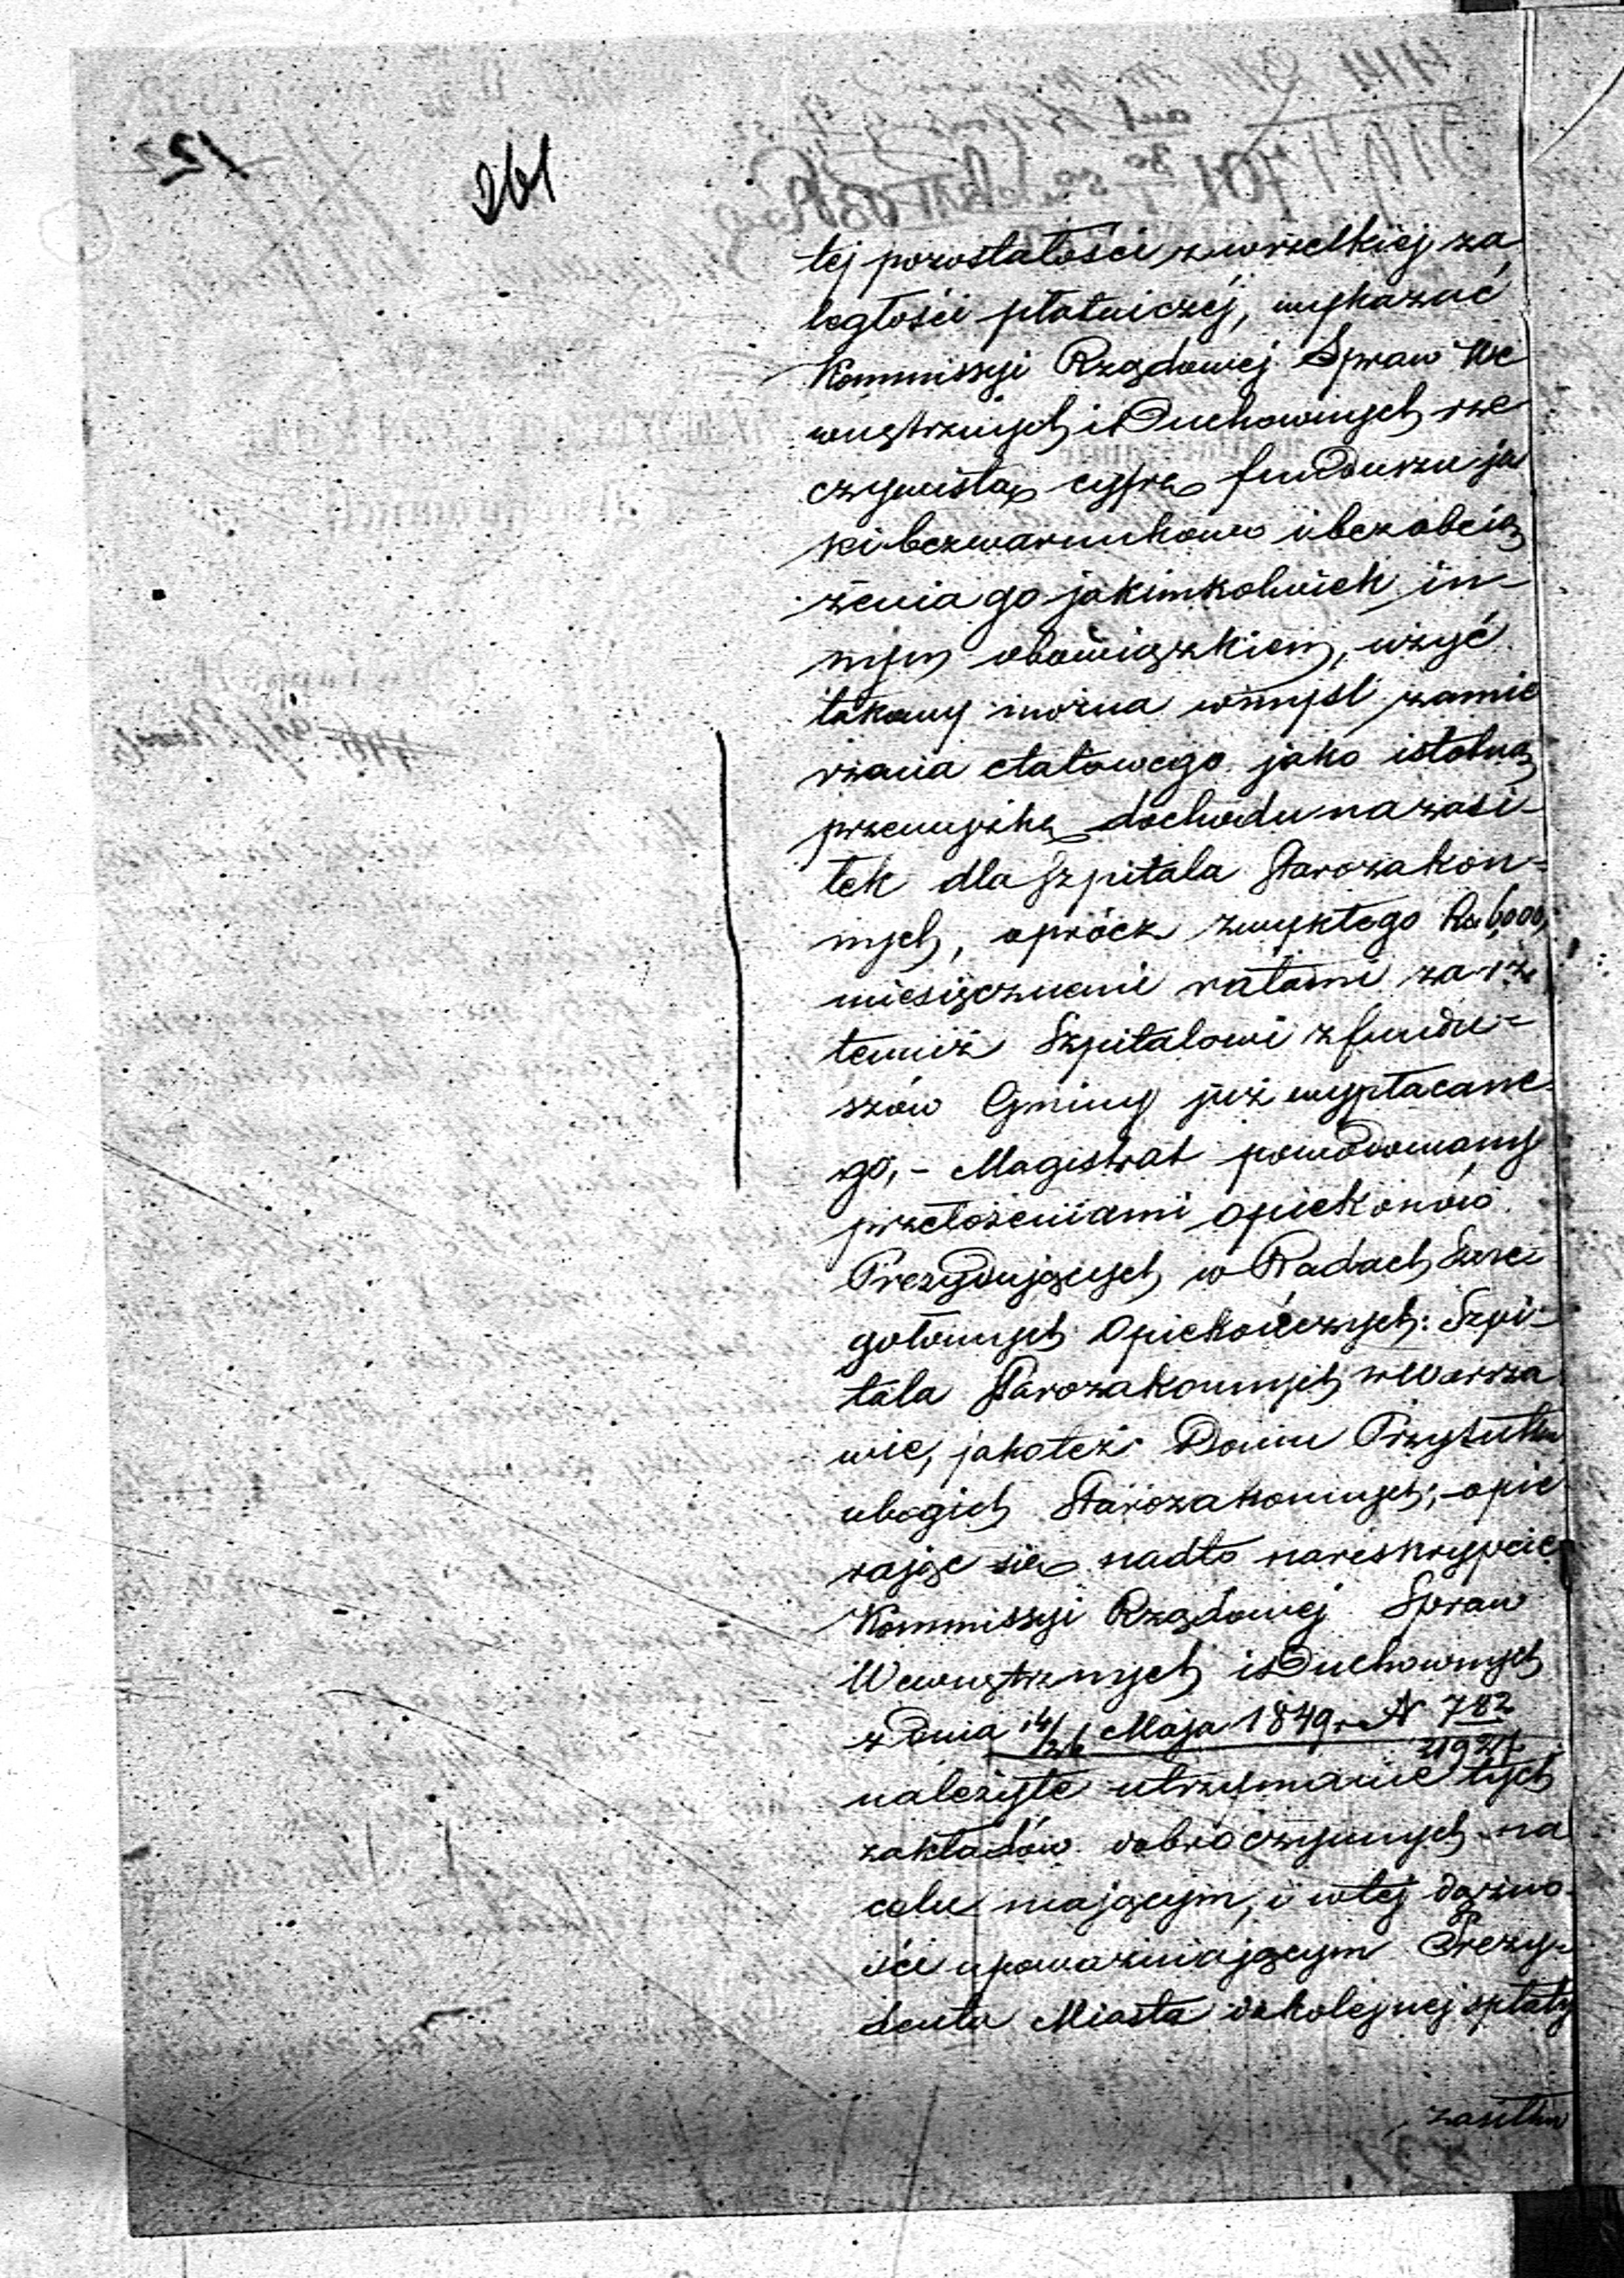 261
tej pozostałości z wszelkiej za
ległości płatniczéj, wykazać
Kommissyi Rządowej Spraw We
wnętrznych i Duchownych rze
czywistą cyfrę funduszu ja
ki bezwarunkowo i bez obcią
żenia go jakimkolwiek in-
nym obowiązkiem, użyć
takowy można w myśl zamie
rzania etatowego jako istotną
przewyżkę dochodu na zasi-
łek dla Szpitala Starozakon=
nych, oprócz zwykłego Rs 6,000,
miesięcznemi ratami za rz.
temuż Szpitalowi z fundu=
szów Gminy już wypłacane
go,- Magistrat powodowany
przełożeniami opiekunów
Prezydujących w Radach Szcze
gółowych Opiekuńczych: Szpi-
tala Starozakonnych w Warsza
wie, jakoteż Domu Przytułku
ubogich Starozakonnych; opie
rając się nadto na reskrypcie
Kommissyi Rządowéj Spraw
Wewnętrznych i Duchownych
z dnia 14/26 Maja 1849 r. N 782/21921
należyte utrzymanie tych
zakładów dobroczynnych na
celu mającym, i w tej dążno-
ści upoważniającym Prezy-
denta Miasta do kolejnej spłaty
zasiłku